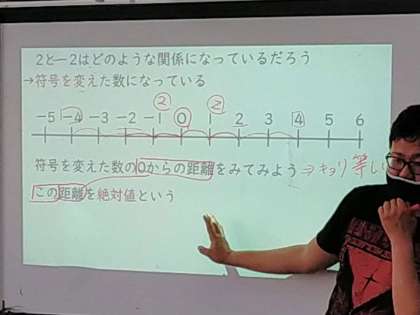 2と－2はどのような関係になっているだろう
→符号を変えた数になっている
② ②
－5 －4 －3 －2 －1 0 1 2 3 4 5 6
符号を変えた数の0からの距離をみてみよう ⇒キョリ等しい
この距離を絶対値という